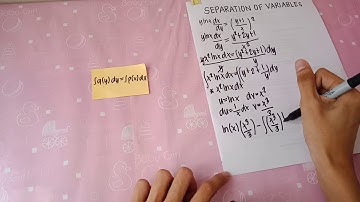 ∫q(y)dy=∫p(x)dx
SEPARATION OF VARIABLES
y ln x dx/dy = ((y+1)/x)²
y ln x dx/dy = (y²+2y+1)/x²
x² ln x dx = (y²+2y+1)dy/y
∫x² ln x dx = ∫(y+2+1/y)dy
* x² ln x dx
u = ln x dv = x²
du = 1/x dx v = x³/3
ln(x)(x³/3) - ∫(x³/3)